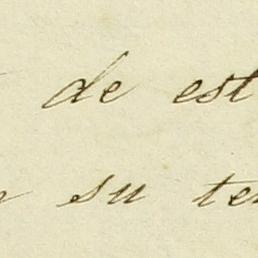 de est
su te